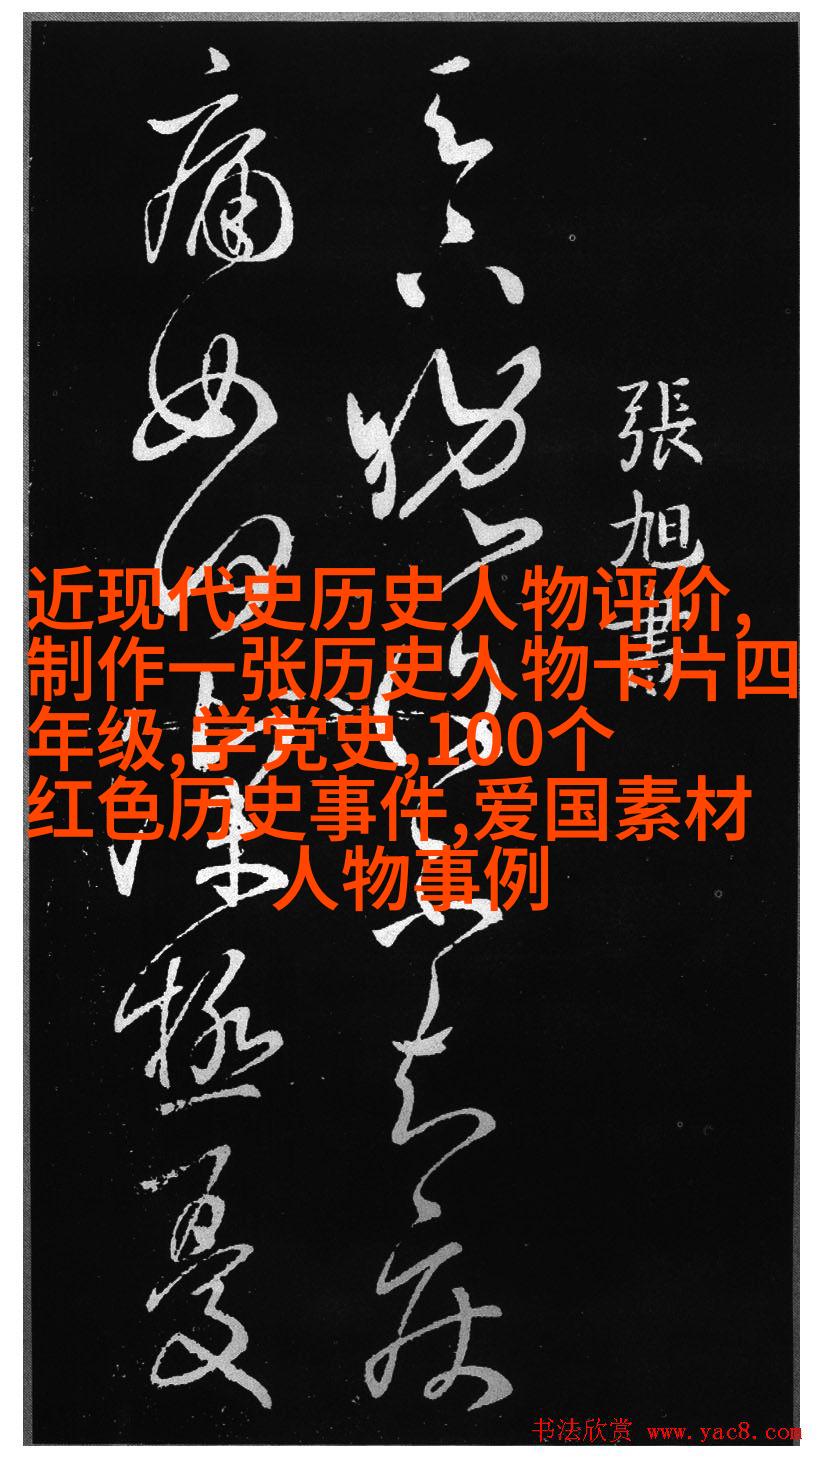 張旭書
痛如何深極憂
近现代史历史人物评价,
制作一张历史人物卡片四
年级,学党史,100个
红色历史事件,爱国素材
人物事例
书法欣赏 www.yac8.com